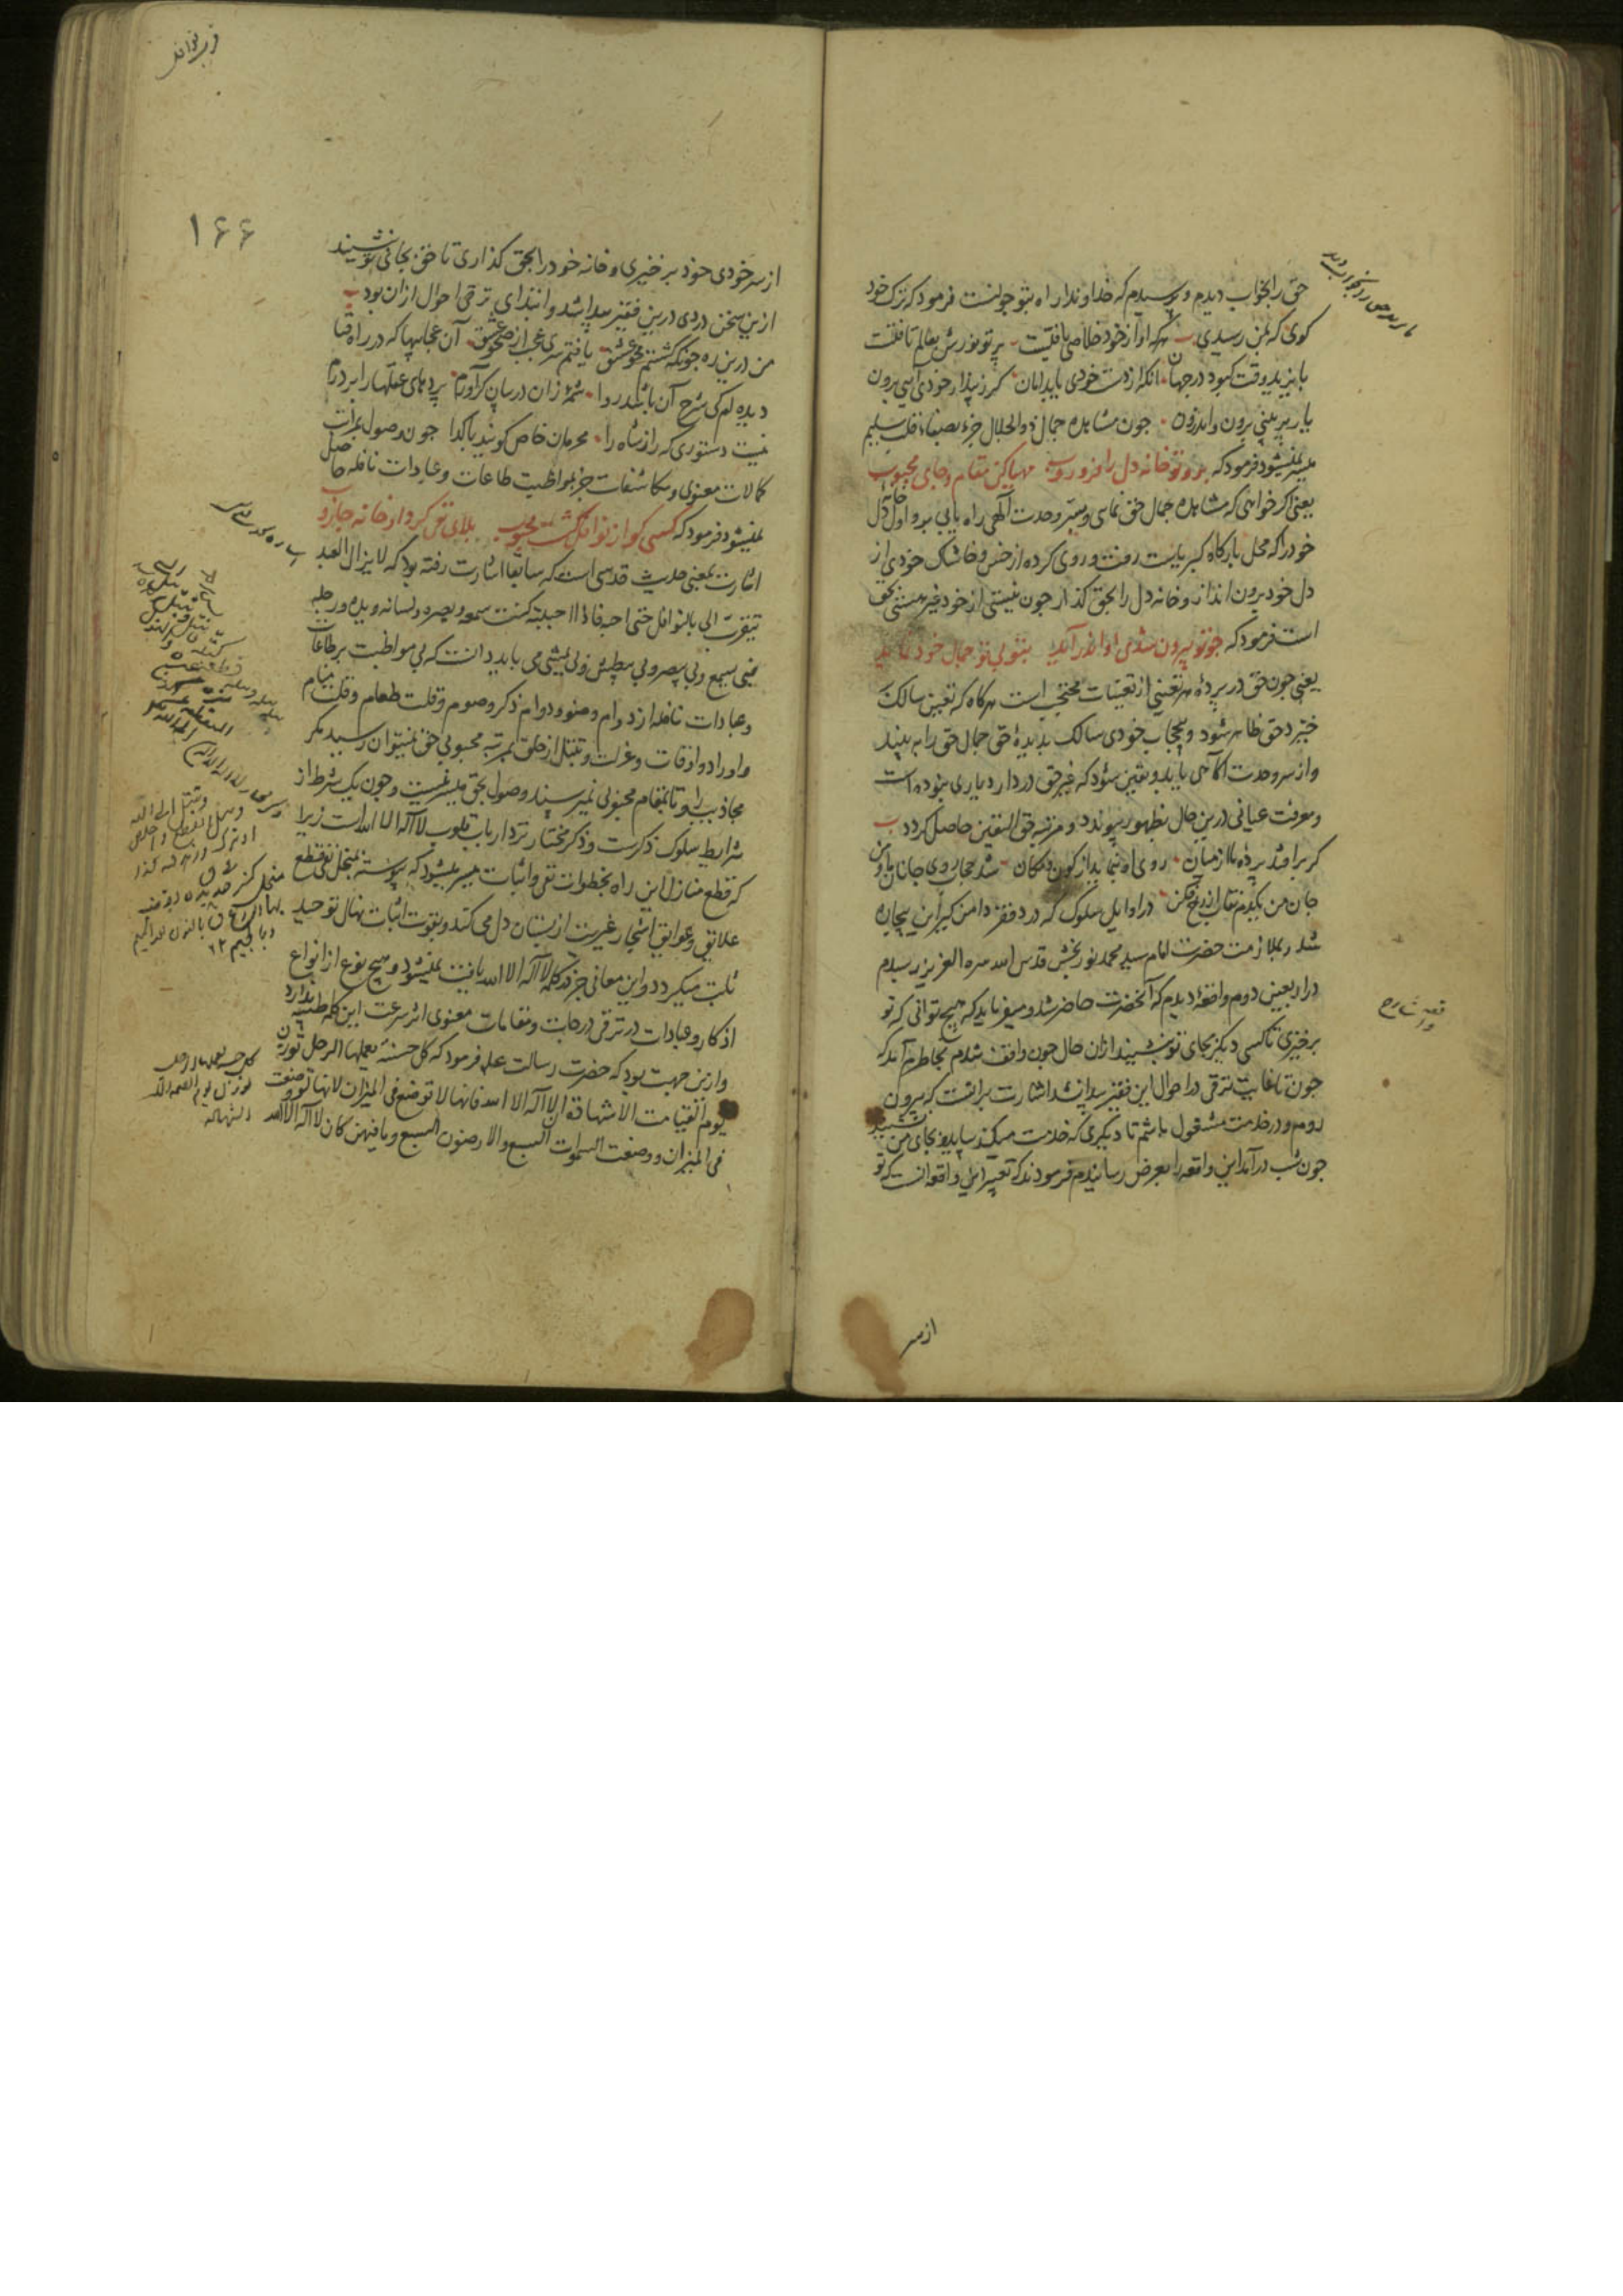 حق را بخواب دیدم و پرسیدم که خداوندا راه بتو جونست فرمود که ترک خود
کوی که بمن رسیدی هر که او از خود خلاصی یافتست پرتو نورش بعالم تافتست
بایزید وقت کبود در جهان آنکه از دست خودی یابد امان کر ز پندار خودی آیی برون
یار بر بینی برون و اندرون جون مشاهده جمال ذو الجلال جز بصفاء قلب سلیم
میسر نمیشود فرمود که برو تو خانه دل را فرو روب مهیا کن مقام و جای محبوب
یعنی اکر خواهی که مشاهده جمال حق نمایی و بسر وحدت آلهی راه یابی برو اول خانه دل
خود را که محل بارکاه کبریایست رفت و روی کرده از خس و خاشاک خودی از
دل خود برون انداز و خانه دل را بحق کذار جون نیستی از خود عین هستی بحق
است فرمود که جو تو بیرون شدی او اندر آید بتو بی تو جمال خود نماید
یعنی جون حق در پرده هر تعینی از تعینات محتجب است هرکاه که تعین سالک
خیزد حق ظاهر شود و بیحجاب خودی سالک بدیده حق جمال حق را به بیند
و از سر وحدت آکاهی یابد و یقین شود که غیر حق در دار دیاری نبوده است
و معرفت عیانی درین حال بظهور پیوندد و مرتبه حق الیقین حاصل کردد
کر بر افتد پرده ما از میان روی او بنماید از کون و مکان شد حجاب روی جانان ما و من
جان من یکدم نقاب از رخ فکن در اوایل سلوک که درد فقر دامن کیر این بیچاره
شد و بملازمت حضرت امام سید محمد نوربخش قدس الله سره العزیز رسیدم
در اربعین دوم واقعه دیدم که آنحضرت حاضر شد و میفرماید که هیچ توانی که تو
برخیزی تا کسی دیکر بجای تو بنشیند ازان حال جون واقف شدم بخاطرم آمد که
جون تا غایت ترقی در احوال این فقیر پیدا نشد اشارت برآنست که بیرون
روم و در خدمت مشغول باشم تا دیکری که خدمت میکند بیاید و بجای من نشیند
جون شب در آمد این واقعه را بعرض رسانیدم فرمودند که تعبیر این واقعه آنست که تو
از سر
واقعه شارح
قرب نوافل
۱۶۶
از سر خودی خود بر خیزی و خانه خود را بحق کذاری تا حق بجای تو نشیند
ازین سخن دردی درین فقیر پیدا شد و ابتدای ترقی احوال ازان بود
من درین ره جونکه کشتم محو عشق یافتم سری عجب از صحو عشق آن عجایبها که در راه فنا
دیده ام کی شرح آن باشد روا شمه زان در بیان کر آورم پرده‌های عقلها را بر درم
نیست دستوری که راز شاه را محرمان خاص کویند با کدا جون وصول بمراتب
کمالات معنوی و مکاشفات جز بمواظبت طاعات و عبادات نافله حاصل
نمیشود فرمود که کسی کو از نوافل کشت محبوب بلای نفی کرد او خانه جاروب
اشارت بمعنی حدیث قدسی است که سابقا اشارت رفته بود که لا یزال العبد
یتقرب الی بالنوافل حتی احبه فاذا احببته کنت سمعه و بصره و لسانه و یده و رجله
فبی یسمع و بی یبصر و بی یبطش و بی یمشی می باید دانست که بی مواظبت بر طاعات
و عبادات نافله از دوام وضو و دوام ذکر و صوم و قلت طعام و قلت منام
و اوراد و اوقات و عزلت و تبتل از خلق بمرتبه محبوبی حق نمیتوان رسید مکر
مجاذیب را و تا بمقام محبوبی نمیرسند وصول بحق میسر نیست و جون یک شرط از
شرایط سلوک ذکرست و ذکر مختار نزد ارباب قلوب لا اله الا الله است زیرا
که قطع منازل این راه بخطوات نفی و اثبات میسر میشود که پیوسته بمنجل نفی قطع
علایق و عوایق اشجار غیریت از بستان دل می کند و بقوت اثبات نهال توحید
ثابت میکردد و این معانی جز در کلمه لا اله الا الله یافت نمیشود و هیچ نوع از انواع
اذکار و عبادات در ترقی درجات و مقامات معنوی اثر سرعت این کلمه طیبه ندارد
و ازین جهت بود که حضرت رسالت علیه فرمود که کل حسنة یعملها الرجل توزن
یوم القیامت الا شهادة ان لا اله الا الله فانها لا توضع فی المیزان لانها لو وضعت
فی المیزان و وضعت السموات السبع والارضون السبع وما فیهن کان لا اله الا الله